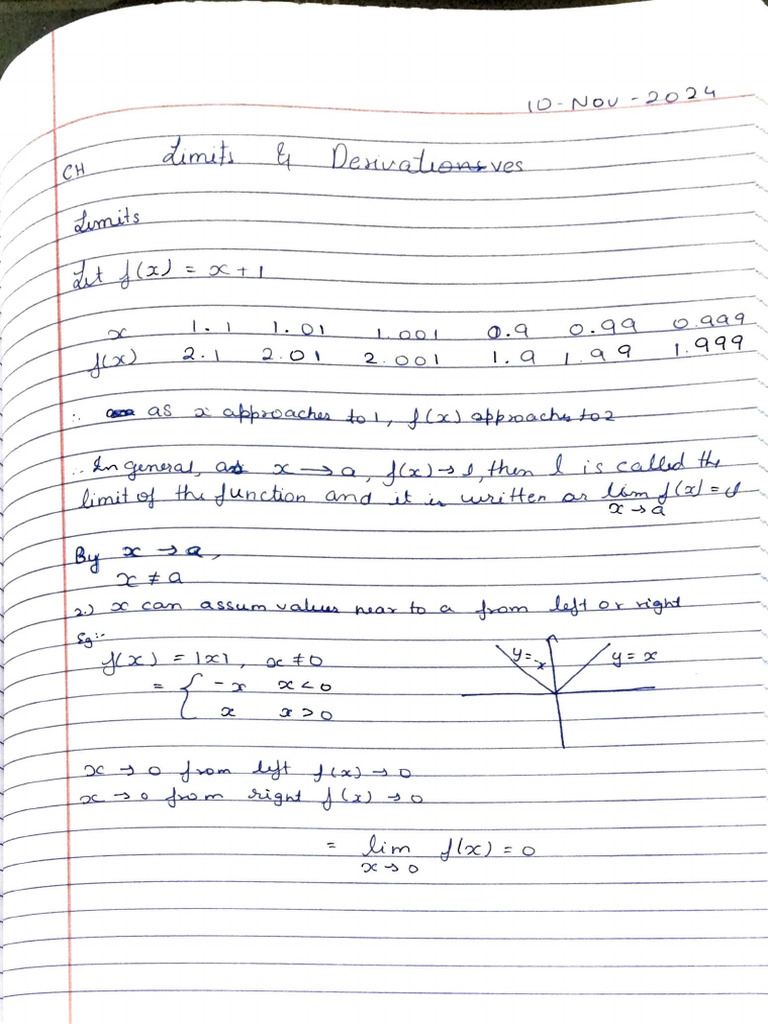 10-Nov-2024
CH Limits & Derivatives
Limits
Let f(x) = x + 1
x 1.1 1.01 1.001 0.9 0.99 0.999
f(x) 2.1 2.01 2.001 1.9 1.99 1.999
∴ as x approaches to 1, f(x) approaches to 2
∴ In general, as x → a, f(x) → l, then l is called the
limit of the function and it is written as lim f(x) = l
x → a
By x → a,
x ≠ a
2.) x can assum values near to a from left or right
Eg:-
f(x) = |x|, x ≠ 0
= { -x x < 0
x x > 0
y = -x
y = x
x → 0 from left f(x) → 0
x → 0 from right f(x) → 0
= lim f(x) = 0
x → 0